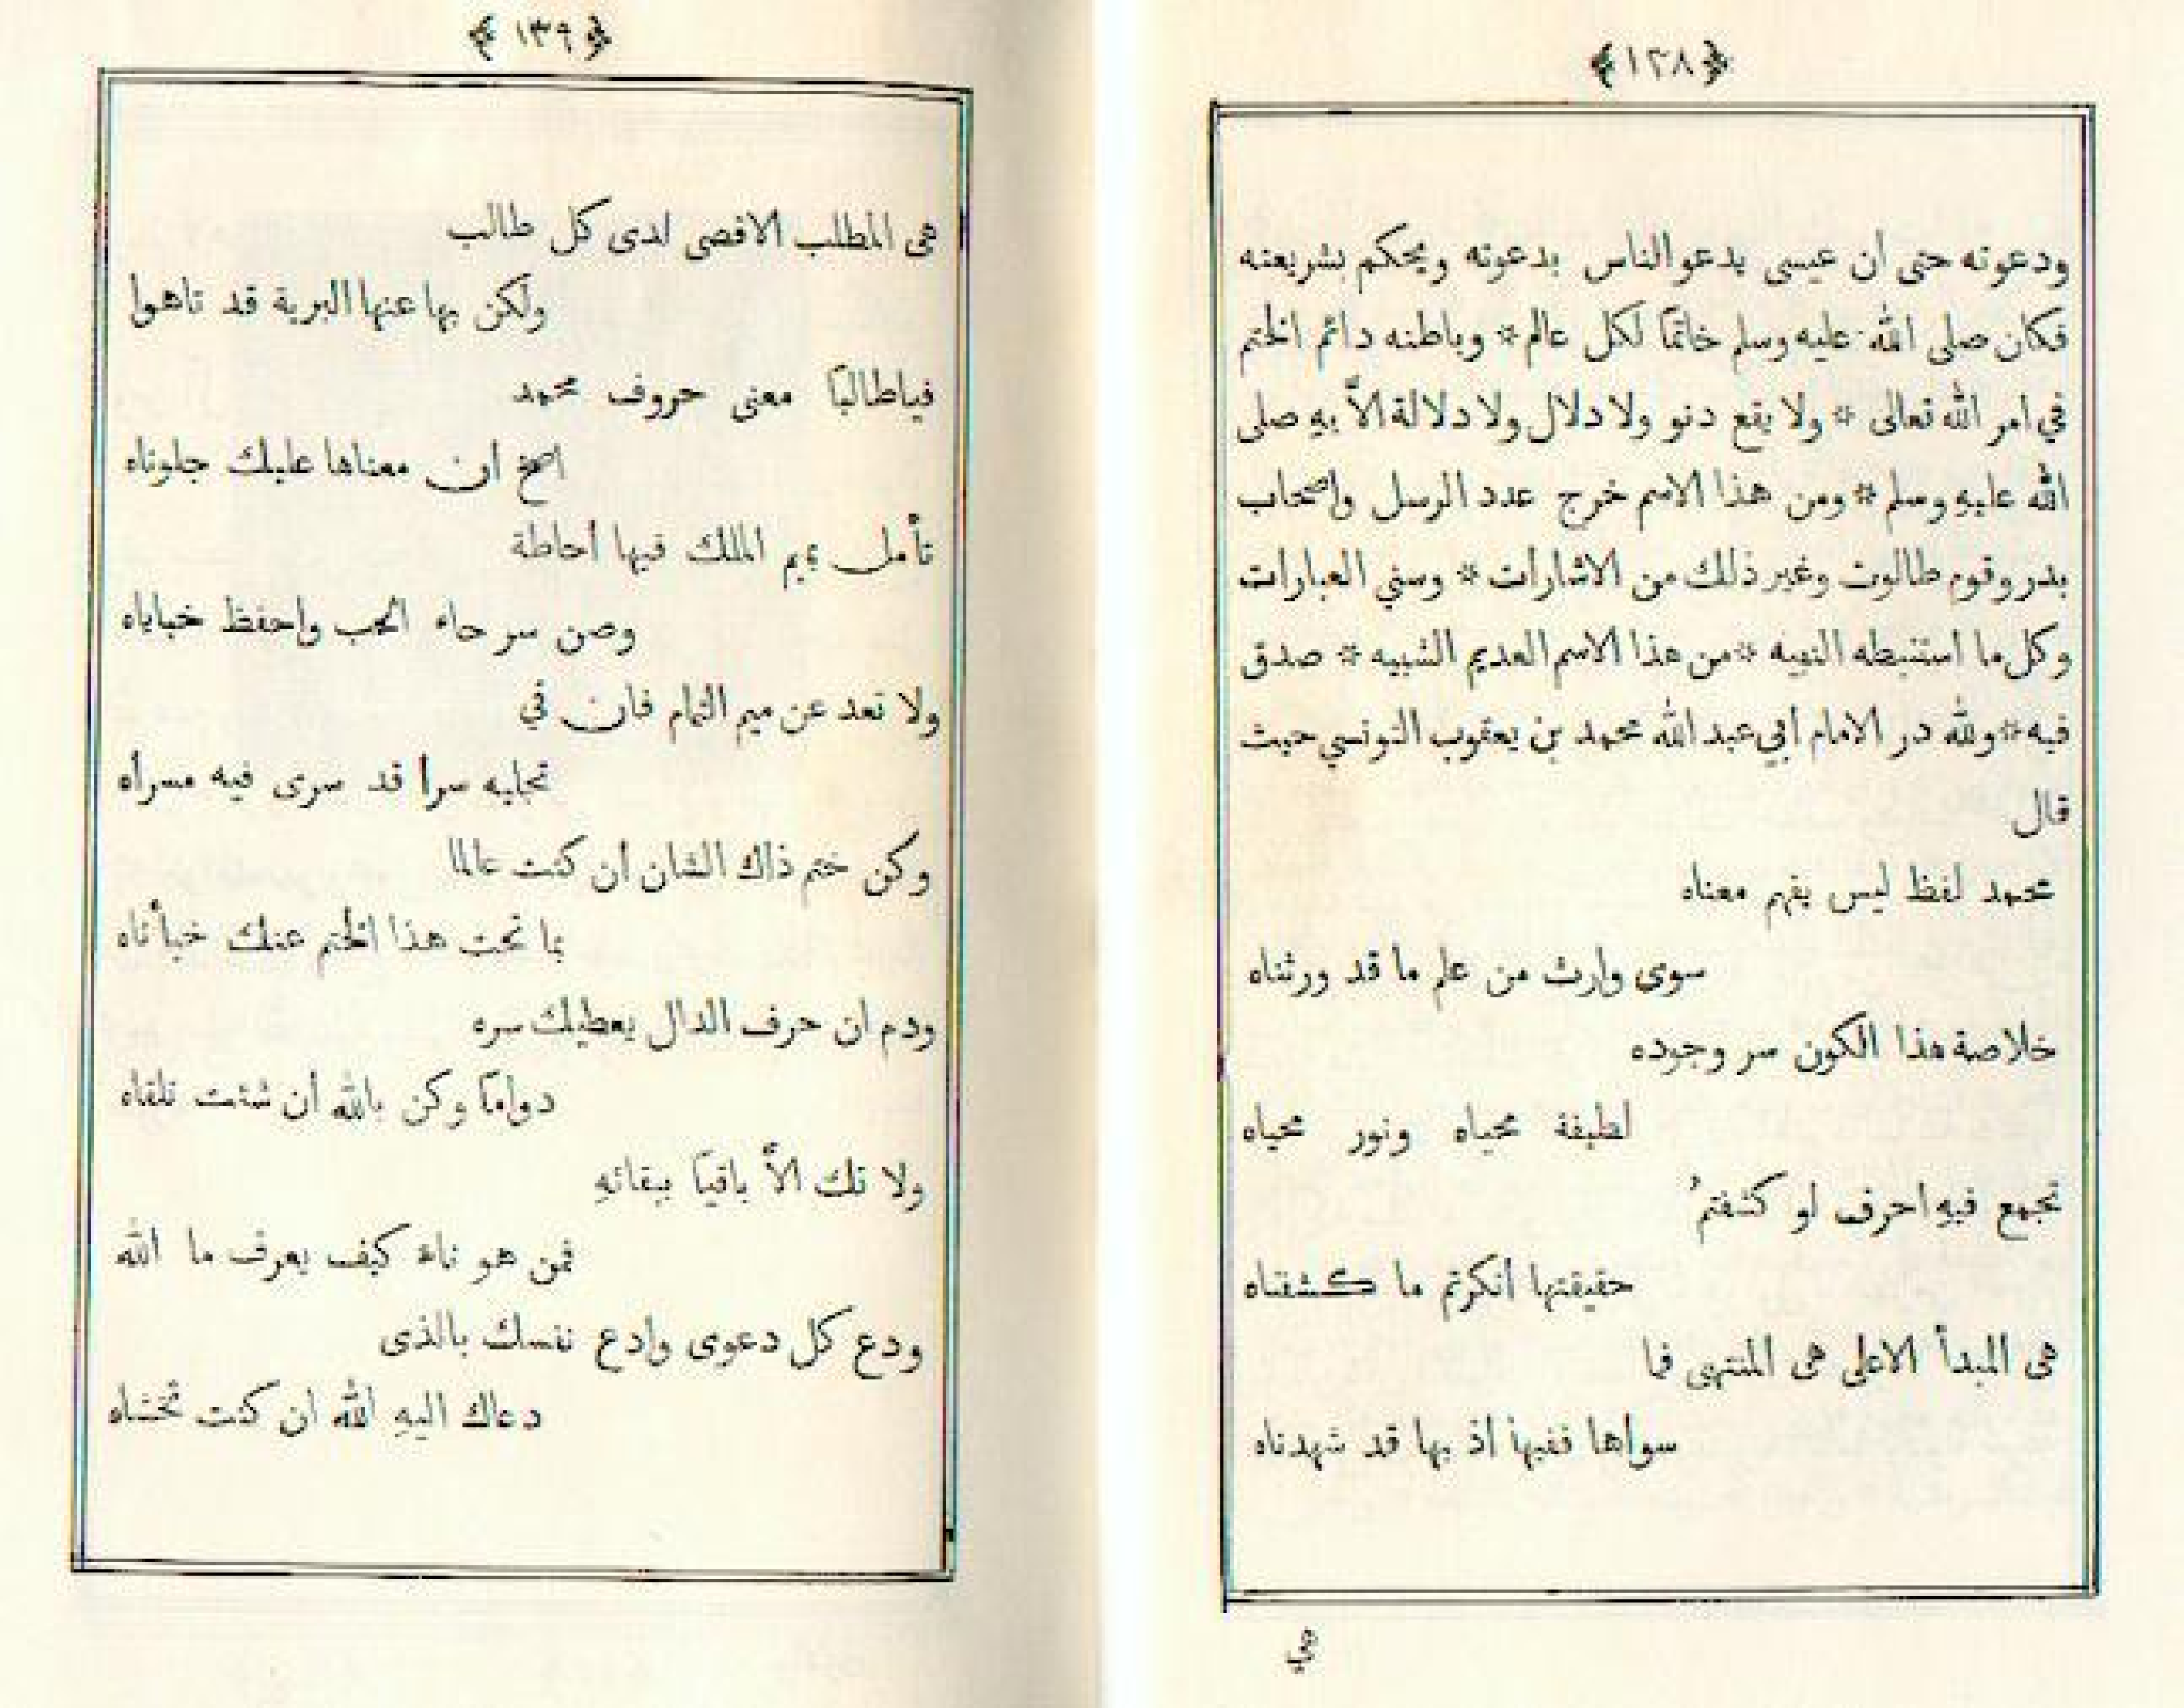 ﴿١٣٨﴾
ودعوته حتى أن عيسى يدعو الناس بدعوته ويحكم بشريعته
فكان صلى الله عليه وسلم خاتمًا لكل عالم * وباطنه دائم الختم
في امر الله تعالى * ولا يقع دنو ولا دلال ولا دلالة الاّ بهِ صلى
الله عليهِ وسلم * ومن هذا الاسم خرج عدد الرسل واصحاب
بدر وقوم طالوت وغير ذلك من الاشارات * وسني العبارات
وكل ما استنبطه النبيه * من هذا الاسم العديم الشبيه * صدق
فيه * ولله در الامام ابي عبد الله محمد بن يعقوب التونسي حيث
قال
محمد لفظ ليس يفهم معناه
سوى وارث من علم ما قد ورثناه
خلاصة هذا الكون سر وجوده
لطيفة محياه ونور محياه
تجمع فيهِ احرف لو كشفتمُ
حقيقتها أنكرتم ما كشفناه
هى المبدأ الاعلى هى المنتهى فما
سواها ففيها اذ بها قد شهدناه
هى
﴿١٣٩﴾
هى المطلب الاقصى لدى كل طالب
ولكن بها عنها البرية قد تاهوا
فياطالبًا معنى حروف محمد
اصخ ان معناها عليك جلوناه
تأمل بميم الملك فيها أحاطة
وصن سر حاء الحب واحفظ خباياه
ولا تعد عن ميم التمام فان في
تجليه سرا قد سرى فيه مسراه
وكن ختم ذاك الشان ان كنت عالما
بما تحت هذا الختم عنك خبأناه
ودم ان حرف الدال يعطيك سره
دوامًا وكن بالله أن شئت تلقاه
ولا تك الاّ باقيًا ببقائهِ
فمن هو ناء كيف يعرف ما الله
ودع كل دعوى وادع نفسك بالذى
دعاك اليهِ الله ان كنت تخشاه